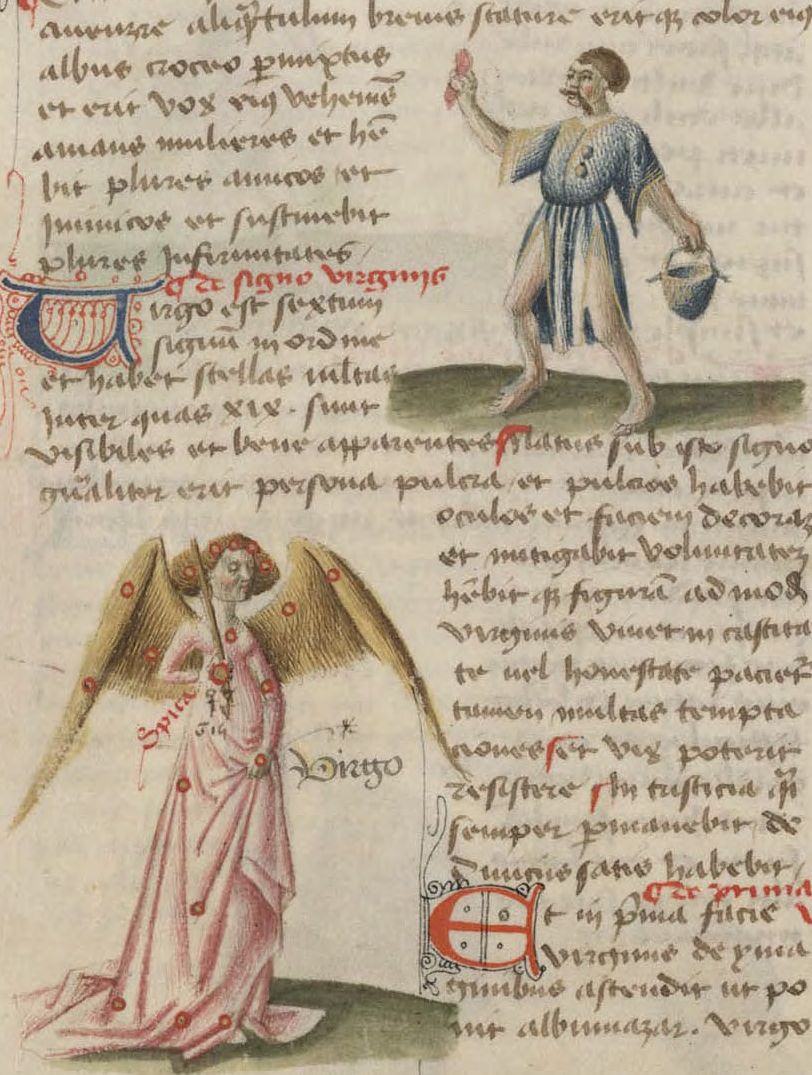 auenzre aliqͣtulum breuis stature eritqꝫ color eiꝰ
albus croceo ꝑmixtus
et erit vox eiꝰ vehemēs
amans mulieres et hē
bit plures amicos et
Inimicos et sustinebit
plures Infirmitates
De signo virginis
Virgo est sextum
signū in ordine
et habet stellas multas
Inter quas xix. sunt
visibiles et bene apparentes Natus sub isto signo
qualiter erit persona pulcra et pulcros habebit
oculos et faciem decoraꝫ
et mitigabit voluntateꝫ
hēbit qꝫ figurā ad mod
virginis viuet in castita
te uel honestate pacietͬ
tamen multas tempta
ciones et vix poterit
resistere In tristicia
semper ꝑmanebit de
diuicijs satis habebit
Spica
Virgo
De prima
Et in pͥma facie
virginis de yma
ginibus ascendit ut po
nit albumazar. virgo